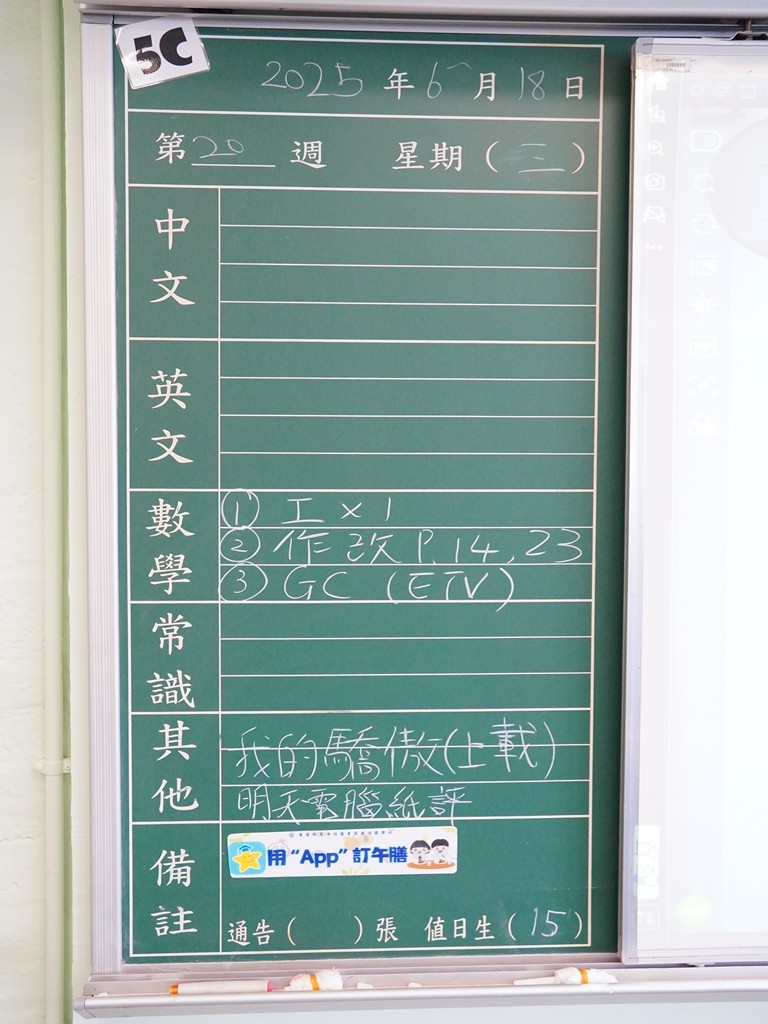 5C
2025 年 6 月 18 日
第 20 週 星期 ( 三 )
中文
英文
數學
① 工 x 1
② 作改 P.14, 23
③ GC (ETV)
常識
其他
我的驕傲(上載)
明天電腦紙評
備註
用 “App” 訂午膳
通告 ( ) 張 值日生 ( 15 )